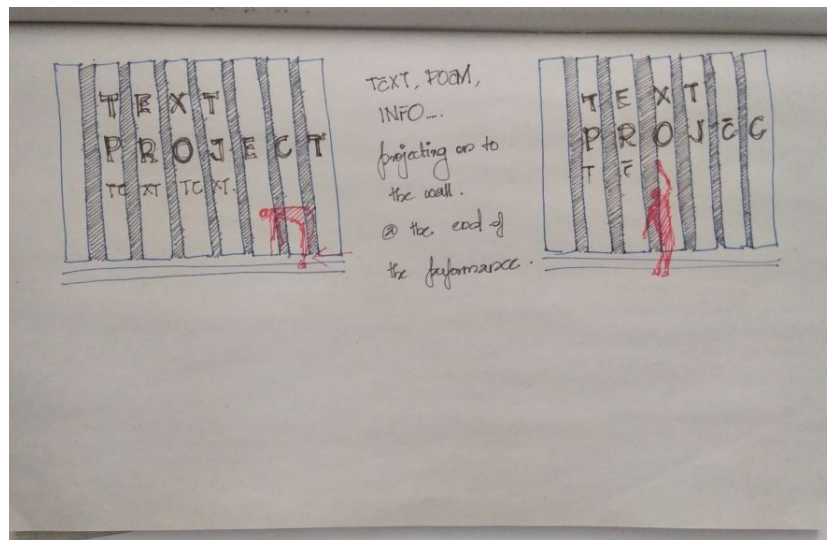 TEXT
PROJECT
TE XT TE XT.
TEXT, POEM,
INFO....
projecting on to
the wall.
@ the end of
the performance.
TEXT
PROJEC
T E